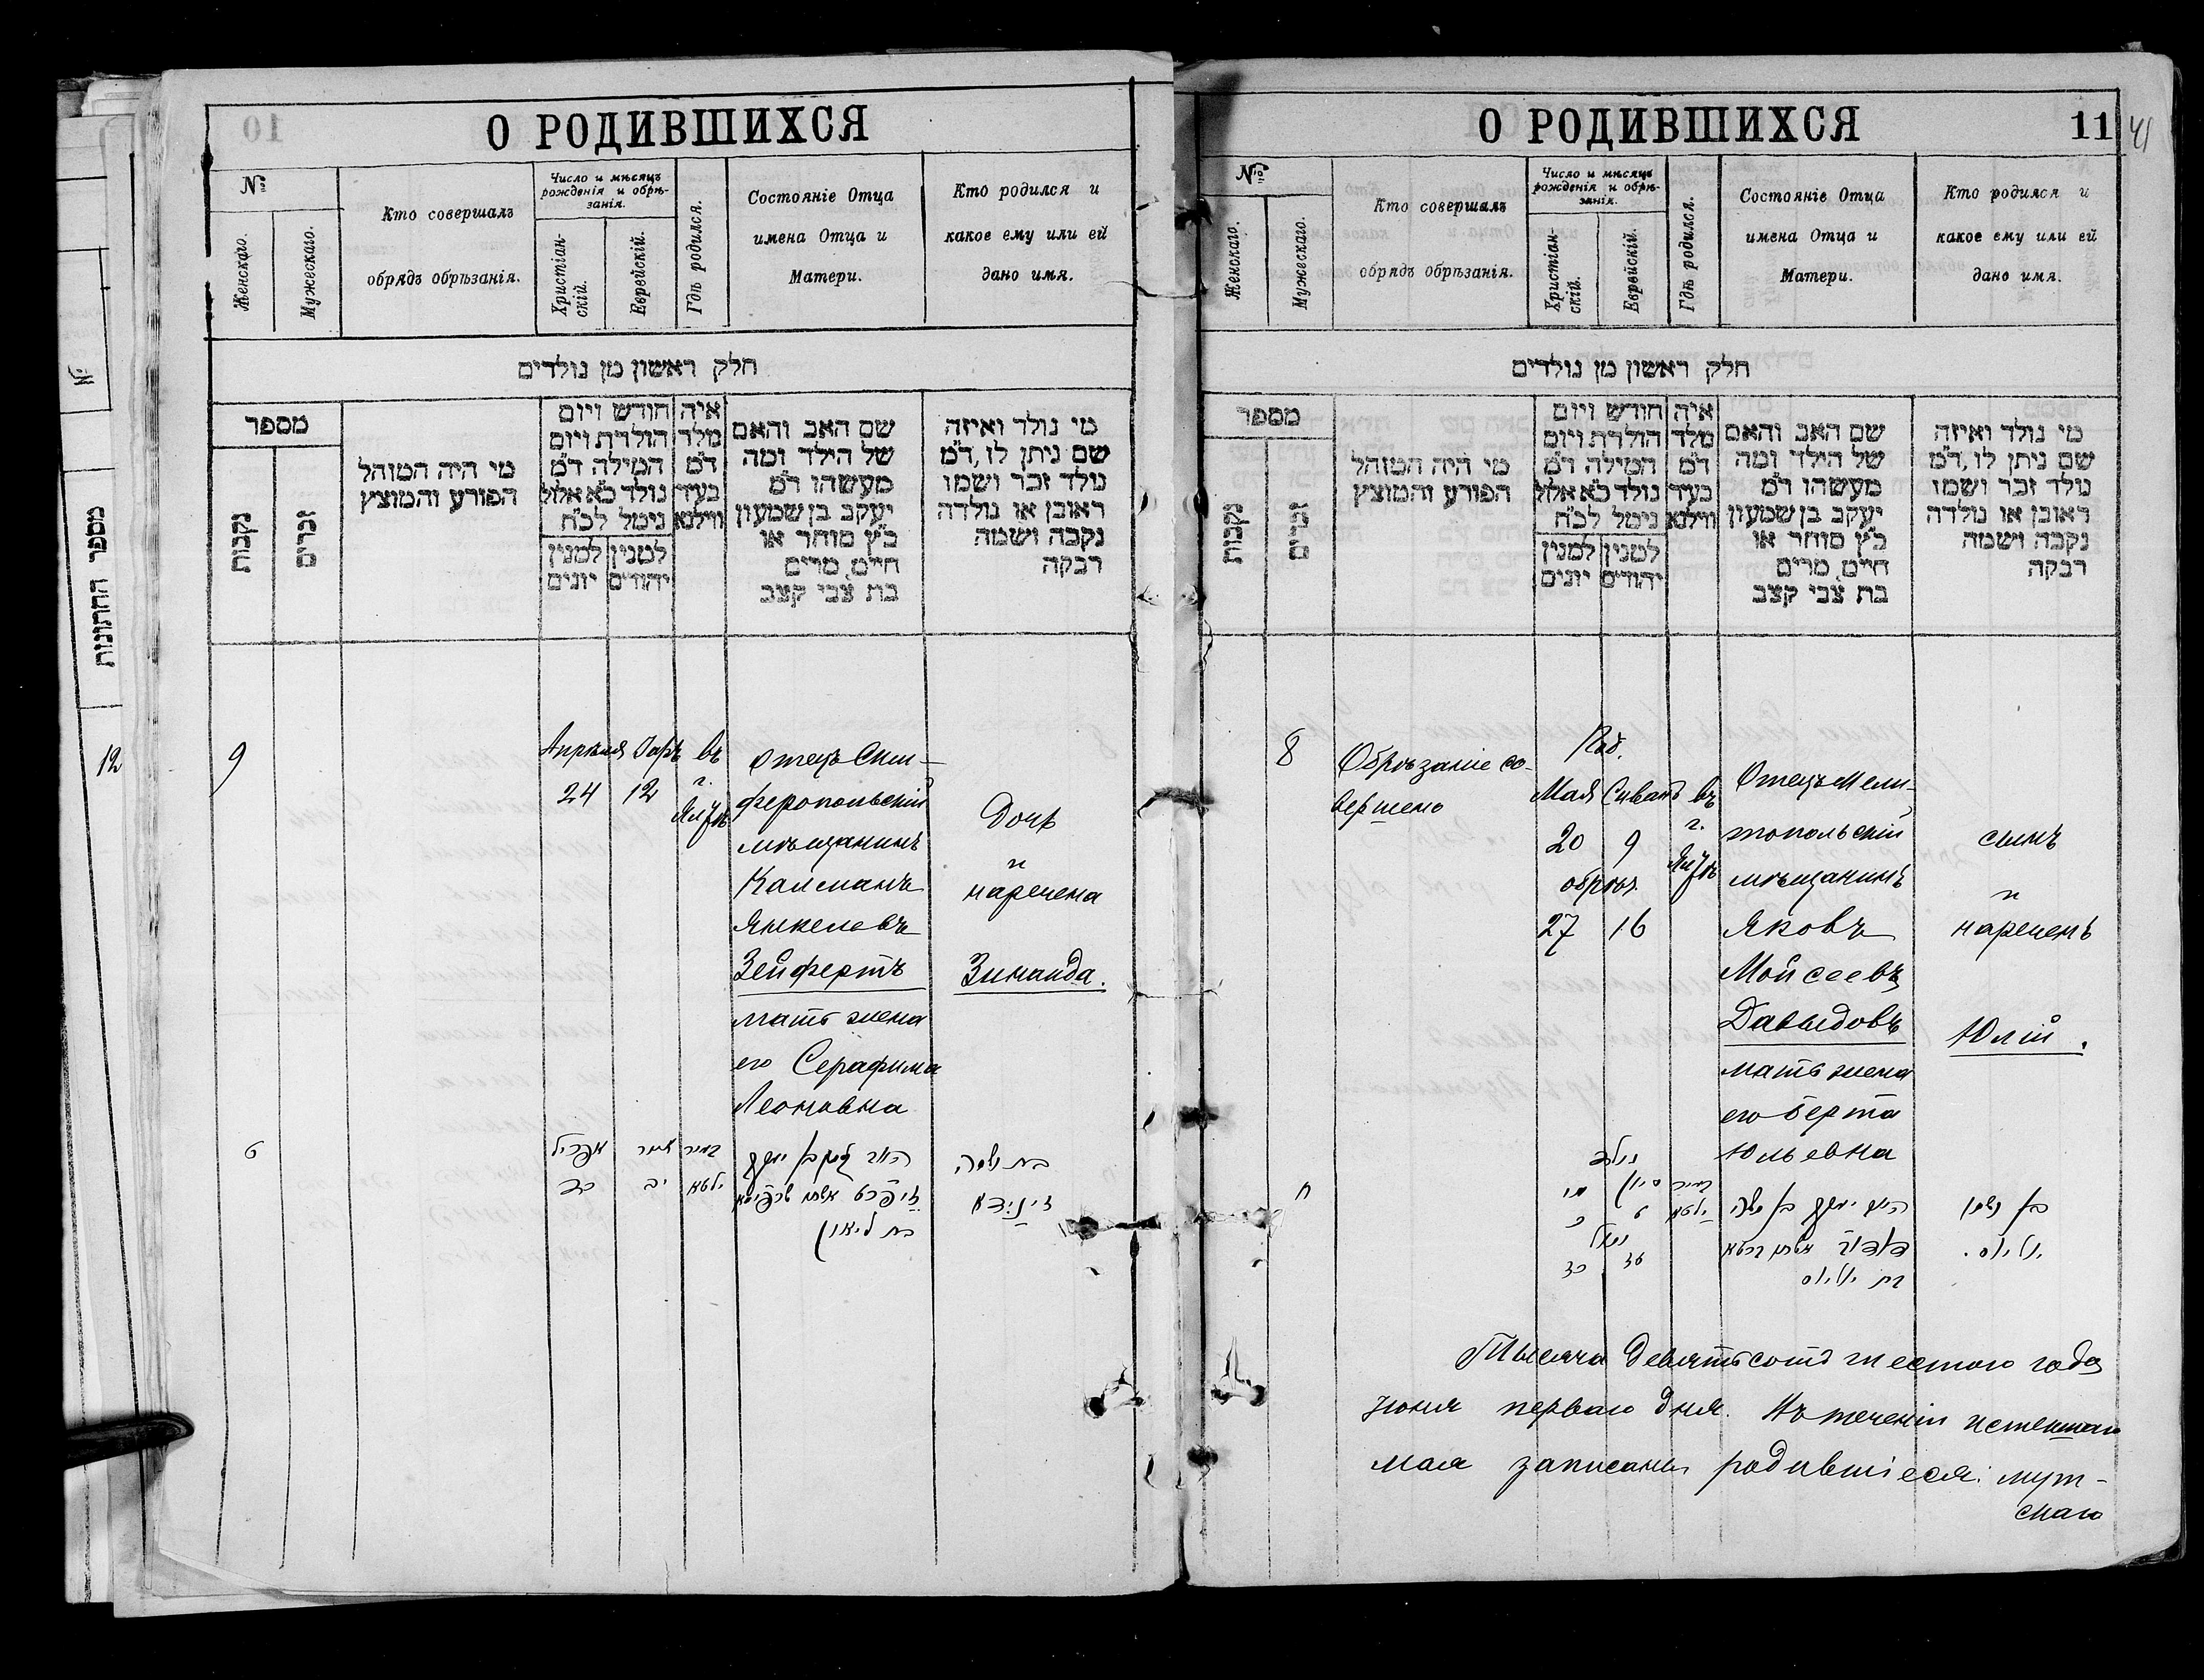 О РОДИВШИХСЯ
№
Женскаго.
Мужескаго.
Кто совершалъ
обрядъ обрѣзанія.
Число и мѣсяцъ
рожденія и обрѣ-
занія.
Христіан-
скій.
Еврейскій.
Гдѣ родился.
Состояніе Отца
имена Отца и
Матери.
Кто родился и
какое ему или ей
дано имя.
חלק ראשון מן נולדים
מספר
נקבות
זכרים
מי היה המוהל
הפורע והמוצץ
חודש ויום
הולדת ויום
המילה ד״מ
נולד כ״א אלול
נימל לכ״ח
למנין למנין
יהודים יונים
איה
מלד
ד״מ
בעיר
ווילנא
שם האב והאם
של הילד ומה
מעשהו ד״מ
יעקב בן שמעון
כ״ץ סוחר או
חיים, מרים
בת צבי קצב
מי נולד ואיזה
שם ניתן לו, ד״מ
נולד זכר ושמו
ראובן או נולדה
נקבה ושמה
רבקה
9
Апрѣля Іаръ въ
24 12 г.
Ялтѣ
Отецъ Сим-
феропольскій
мѣщанинъ
Калманъ
Янкелевъ
Зейфертъ
мать жена
его Серафима
Леоновна
Дочь
и
наречена
Зинаида.
ט
אפריל אייר בעיר
כד יב יאלטא
בת ליאון
12
מספר החתונות
№
О РОДИВШИХСЯ
11
41
№
Женскаго.
Мужескаго.
Кто совершалъ
обрядъ обрѣзанія.
Число и мѣсяцъ
рожденія и обрѣ-
занія.
Христіан-
скій.
Еврейскій.
Гдѣ родился.
Состояніе Отца
имена Отца и
Матери.
Кто родился и
какое ему или ей
дано имя.
חלק ראשון מן נולדים
מספר
נקבות
זכרים
מי היה המוהל
הפורע והמוצץ
חודש ויום
הולדת ויום
המילה ד״מ
נולד כ״א אלול
נימל לכ״ח
למנין למנין
יהודים יונים
איה
מלד
ד״מ
בעיר
ווילנא
שם האב והאם
של הילד ומה
מעשהו ד״מ
יעקב בן שמעון
כ״ץ סוחר או
חיים, מרים
בת צבי קצב
מי נולד ואיזה
שם ניתן לו, ד״מ
נולד זכר ושמו
ראובן או נולדה
נקבה ושמה
רבקה
8
Обрѣзаніе со-
вершено
Род.
Мая Сиванъ въ
20 9 г.
обрѣз. Ялтѣ
27 16
Отецъ Мели-
топольскій
мѣщанинъ
Яковъ
Мойсеевъ
Давыдовъ
мать жена
его Берта
Юльевна
сынъ
и
нареченъ
Юлій.
ח
נולד
מיי סיון בעיר
כ ט יאלטא
נימול
כז טז
בת יוליוס
בן ושמו
יוליוס.
Тысяча девятьсотъ шестого года
іюня перваго дня. Въ теченіи истекшаго
мая записаны родившіеся: муж-
скаго